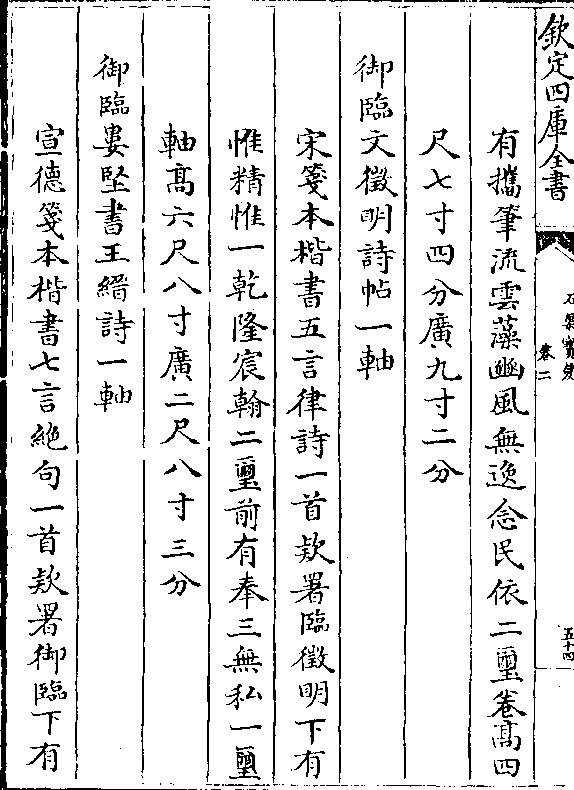 欽定四庫全書
石渠寶笈
卷二
五十四
有攜筆流雲藻豳風無逸念民依二璽卷髙四
尺七寸四分廣九寸二分
御臨文徵明詩帖一軸
宋箋本楷書五言律詩一首欵署臨徵明下有
惟精惟一乾隆宸翰二璽前有奉三無私一璽
軸髙六尺八寸廣二尺八寸三分
御臨婁堅書王縉詩一軸
宣德箋本楷書七言絶句一首欵署御臨下有